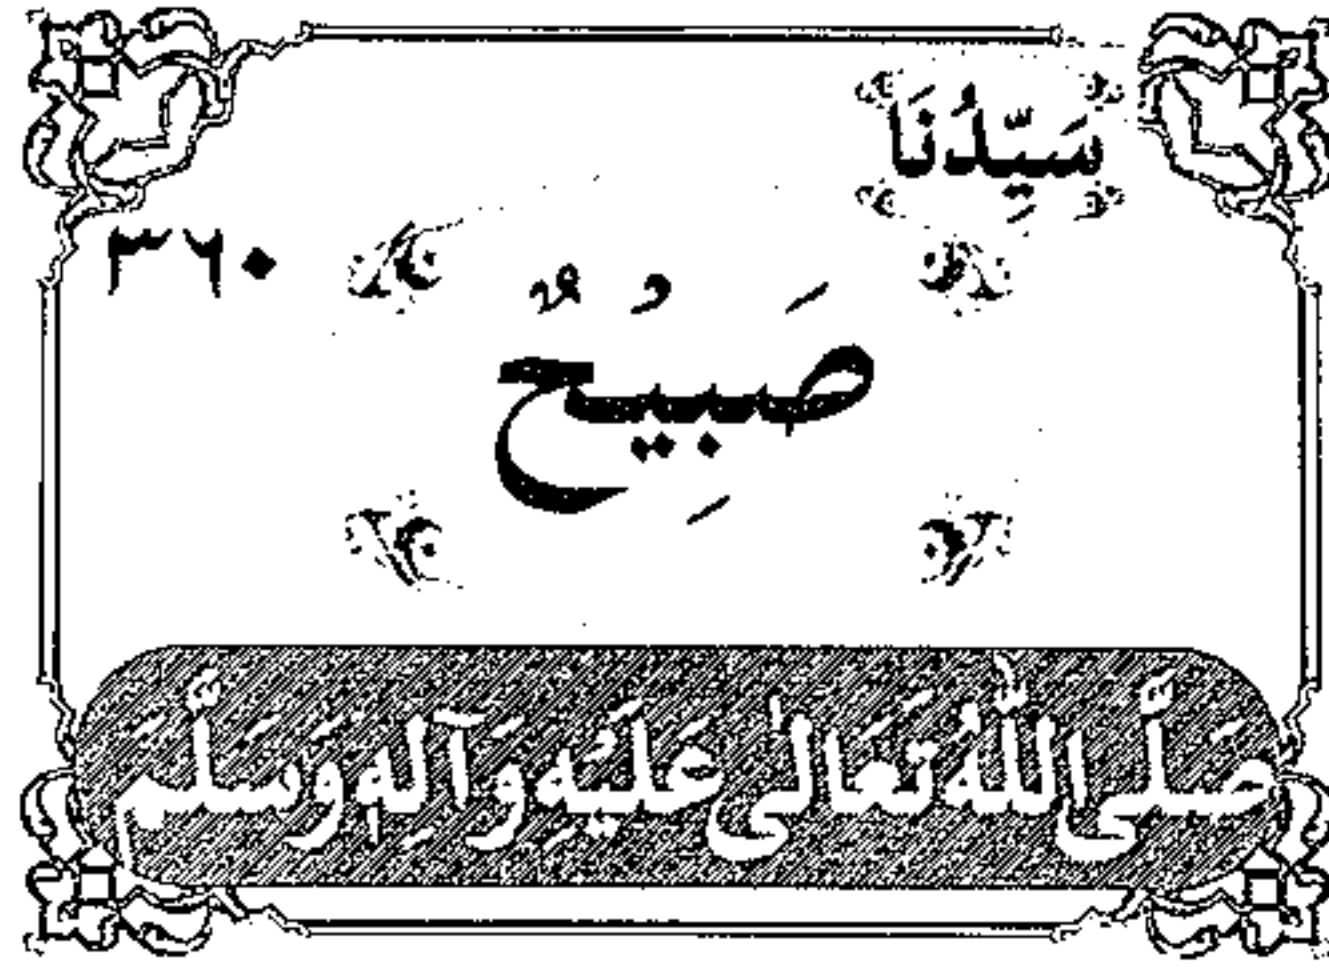 سَيِّدُنَا
٣٦٠
صَبِيْحٌ
صَلَّى اللّٰهُ تَعَالٰى عَلَيْهِ وَآلِهٖ وَسَلَّمَ